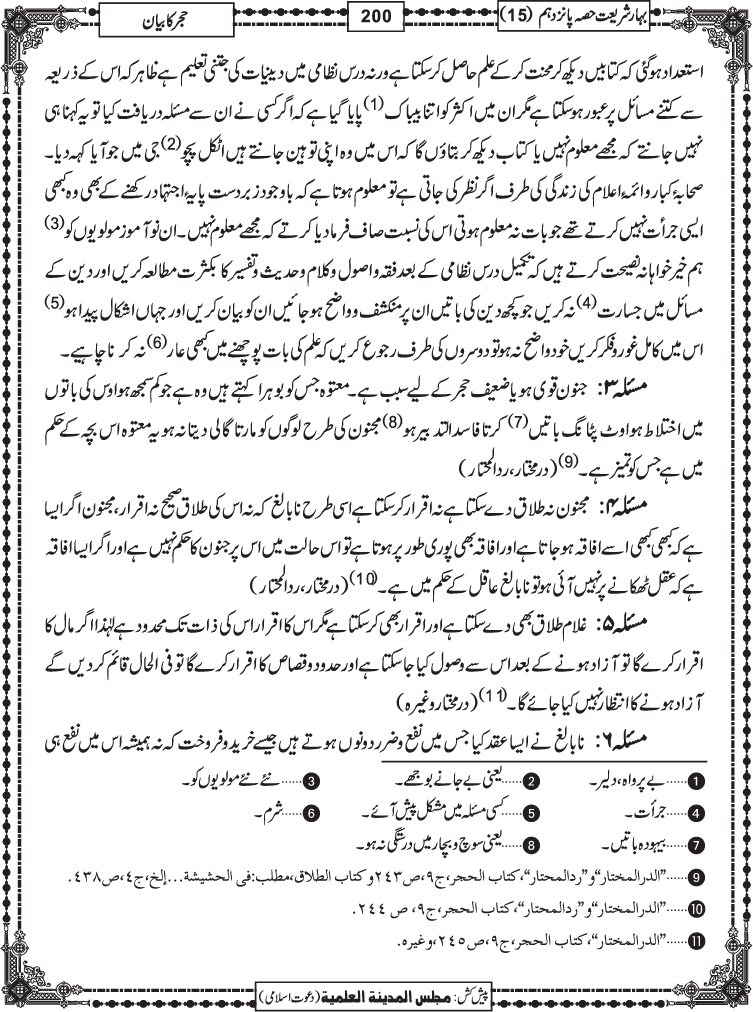 بہار شریعت حصہ پانزدہم (15)
200
حجر کا بیان
استعداد ہوگئی کہ کتابیں دیکھ کر محنت کرکے علم حاصل کرسکتا ہے ورنہ درس نظامی میں دینیات کی جتنی تعلیم ہے ظاہر کہ اس کے ذریعہ
سے کتنے مسائل پر عبور ہوسکتا ہے مگر ان میں اکثر کو اتنا بیباک (1) پایا گیا ہے کہ اگر کسی نے ان سے مسئلہ دریافت کیا تو یہ کہنا ہی
نہیں جانتے کہ مجھے معلوم نہیں یا کتاب دیکھ کر بتاؤں گا کہ اس میں وہ اپنی توہین جانتے ہیں اٹکل پچو (2) جی میں جو آیا کہہ دیا۔
صحابۂ کبار وائمۂ اعلام کی زندگی کی طرف اگر نظر کی جاتی ہے تو معلوم ہوتا ہے کہ باوجود زبردست پایۂ اجتہاد رکھنے کے بھی وہ کبھی
ایسی جرأت نہیں کرتے تھے جو بات نہ معلوم ہوتی اس کی نسبت صاف فرما دیا کرتے کہ مجھے معلوم نہیں۔ ان نوآموز مولویوں کو (3)
ہم خیر خواہانہ نصیحت کرتے ہیں کہ تکمیل درس نظامی کے بعد فقہ و اصول و کلام و حدیث و تفسیر کا بکثرت مطالعہ کریں اور دین کے
مسائل میں جسارت (4) نہ کریں جو کچھ دین کی باتیں ان پر منکشف و واضح ہو جائیں ان کو بیان کریں اور جہاں اشکال پیدا ہو (5)
اس میں کامل غور و فکر کریں خود واضح نہ ہو تو دوسروں کی طرف رجوع کریں کہ علم کی بات پوچھنے میں کبھی عار (6) نہ کرنا چاہیے۔
مسئلہ ۳: جنون قوی ہو یا ضعیف حجر کے لیے سبب ہے۔ معتوہ جس کو بوہرا کہتے ہیں وہ ہے جو کم سمجھ ہو اوس کی باتوں
میں اختلاط ہو اوٹ پٹانگ باتیں (7) کرتا فاسد التدبیر ہو (8) مجنون کی طرح لوگوں کو مارتا گالی دیتا نہ ہو یہ معتوہ اس بچہ کے حکم
میں ہے جس کو تمیز ہے۔ (9) (درمختار، ردالمحتار)
مسئلہ ۴: مجنون نہ طلاق دے سکتا ہے نہ اقرار کرسکتا ہے اسی طرح نابالغ کہ نہ اس کی طلاق صحیح نہ اقرار، مجنون اگر ایسا
ہے کہ کبھی کبھی اسے افاقہ ہو جاتا ہے اور افاقہ بھی پوری طور پر ہوتا ہے تو اس حالت میں اس پر جنون کا حکم نہیں ہے اور اگر ایسا افاقہ
ہے کہ عقل ٹھکانے پر نہیں آئی ہو تو نابالغ عاقل کے حکم میں ہے۔ (10) (درمختار، ردالمحتار)
مسئلہ ۵: غلام طلاق بھی دے سکتا ہے اور اقرار بھی کرسکتا ہے مگر اس کا اقرار اس کی ذات تک محدود ہے لہٰذا اگر مال کا
اقرار کرے گا تو آزاد ہونے کے بعد اس سے وصول کیا جاسکتا ہے اور حدود و قصاص کا اقرار کرے گا تو فی الحال قائم کر دیں گے
آزاد ہونے کا انتظار نہیں کیا جائے گا۔ (11) (درمختار وغیرہ)
مسئلہ ۶: نابالغ نے ایسا عقد کیا جس میں نفع و ضرر دونوں ہوتے ہیں جیسے خرید و فروخت کہ نہ ہمیشہ اس میں نفع ہی
1 ......بے پرواہ، دلیر۔ 2 ......یعنی بے جانے بوجھے۔ 3 ......نئے نئے مولویوں کو۔
4 ......جرأت۔ 5 ......کسی مسئلہ میں مشکل پیش آئے۔ 6 ......شرم۔
7 ......بیہودہ باتیں۔ 8 ......یعنی سوچ و بچار میں درستگی نہ ہو۔
9 ......”الدرالمختار“ و ”ردالمحتار“، کتاب الحجر، ج۹، ص۲۴۳ و کتاب الطلاق، مطلب: فی الحشیشة...إلخ، ج٤، ص٤٣٨.
10 ......”الدرالمختار“ و ”ردالمحتار“، کتاب الحجر، ج۹، ص ۲٤٤.
11 ......”الدرالمختار“، کتاب الحجر، ج۹، ص۲٤٥، وغیرہ.
پیش کش: مجلس المدینة العلمیة (دعوت اسلامی)